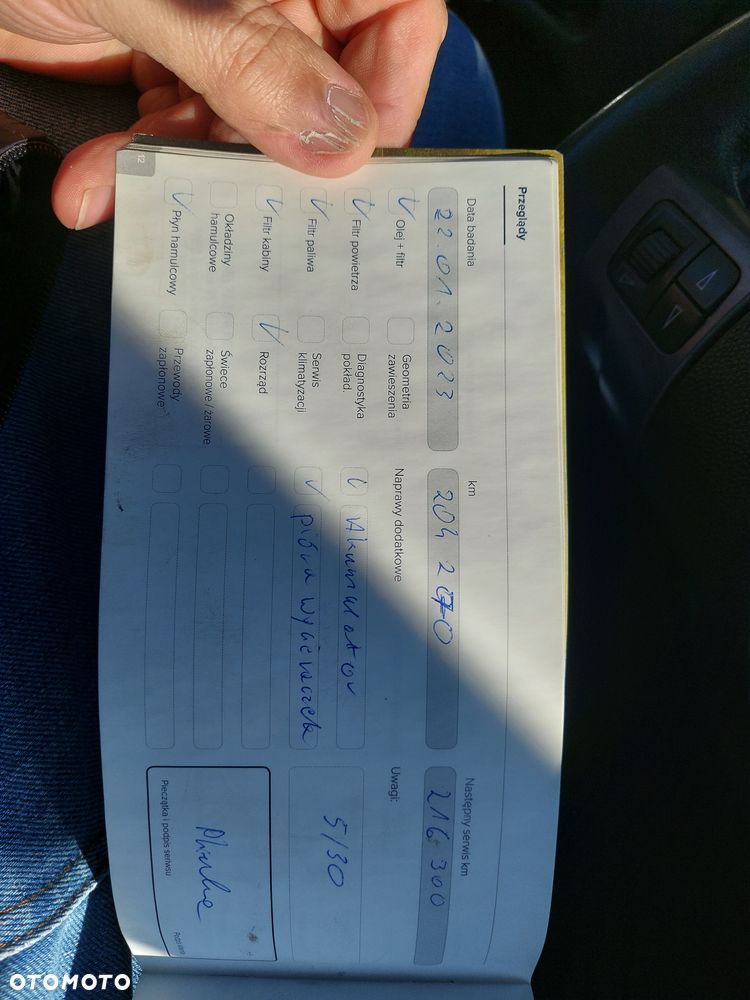 Przeglądy
Data badania
km
Następny serwis km
22.01.2023
204 270
216 300
Olej + filtr
Geometria
zawieszenia
Naprawy dodatkowe
Uwagi:
Filtr powietrza
Diagnostyka
pokład.
Akumulator
Filtr paliwa
Serwis
klimatyzacji
pióra wycieraczek
5/30
Filtr kabiny
Rozrząd
Okładziny
hamulcowe
Świece
zapłonowe / żarowe
Płyn hamulcowy
Przewody
zapłonowe
Pieczątka i podpis serwisu
12
OTOMOTO